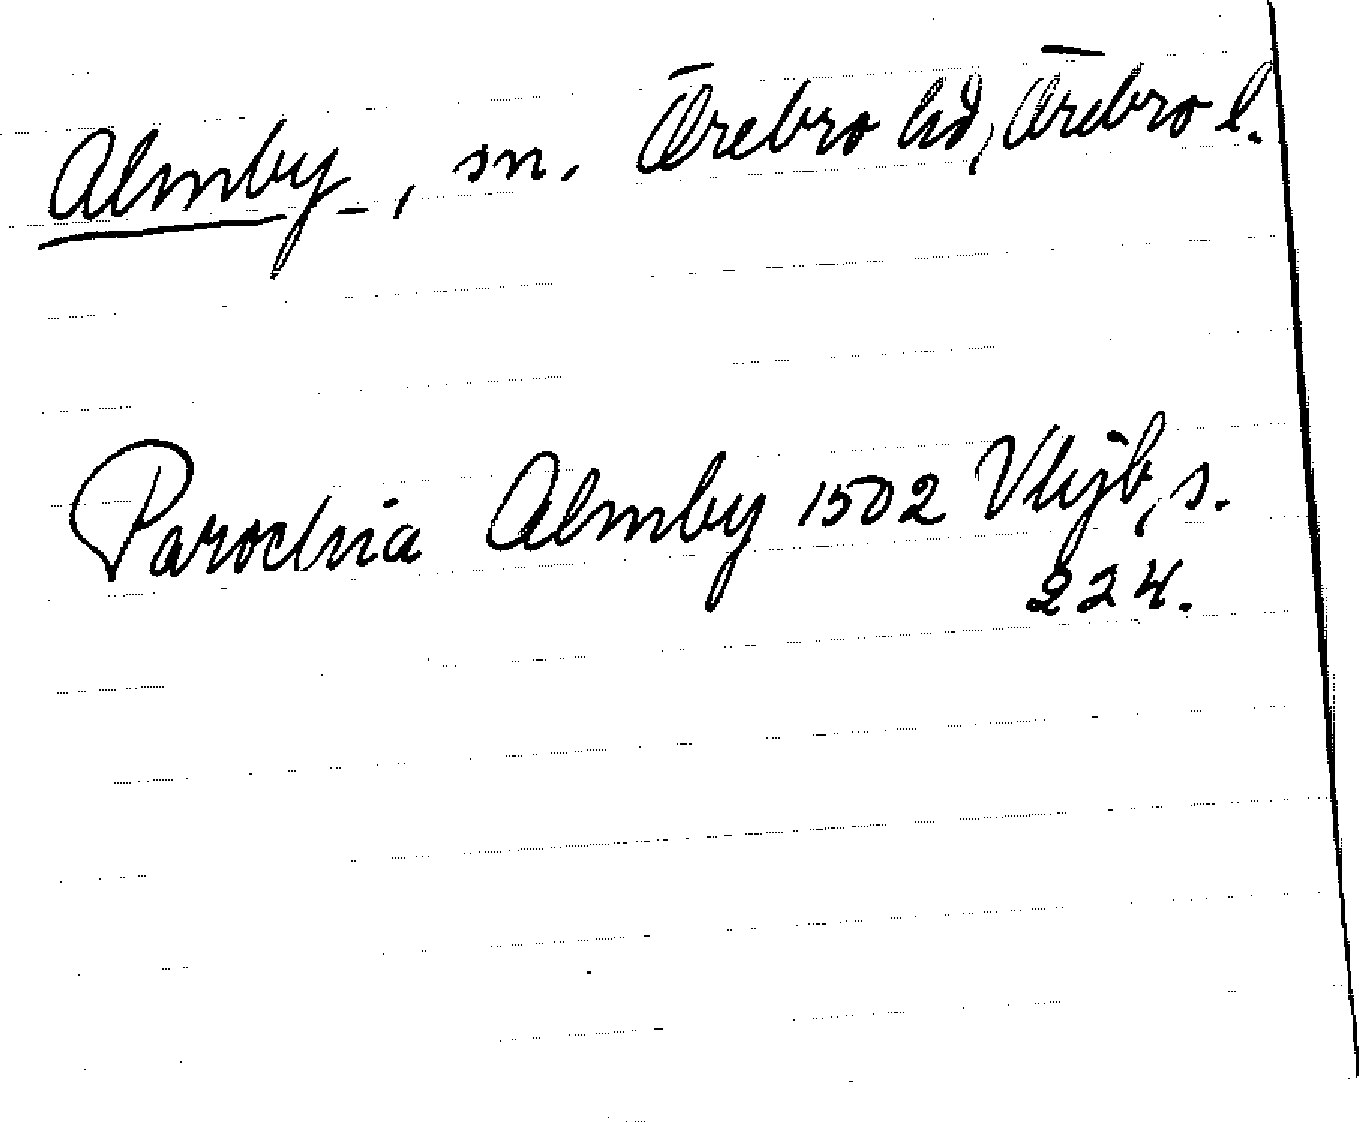 Almby, sn. Örebro hd, Örebro l.
Parochia Almby 1502 Vljb, s.
224.